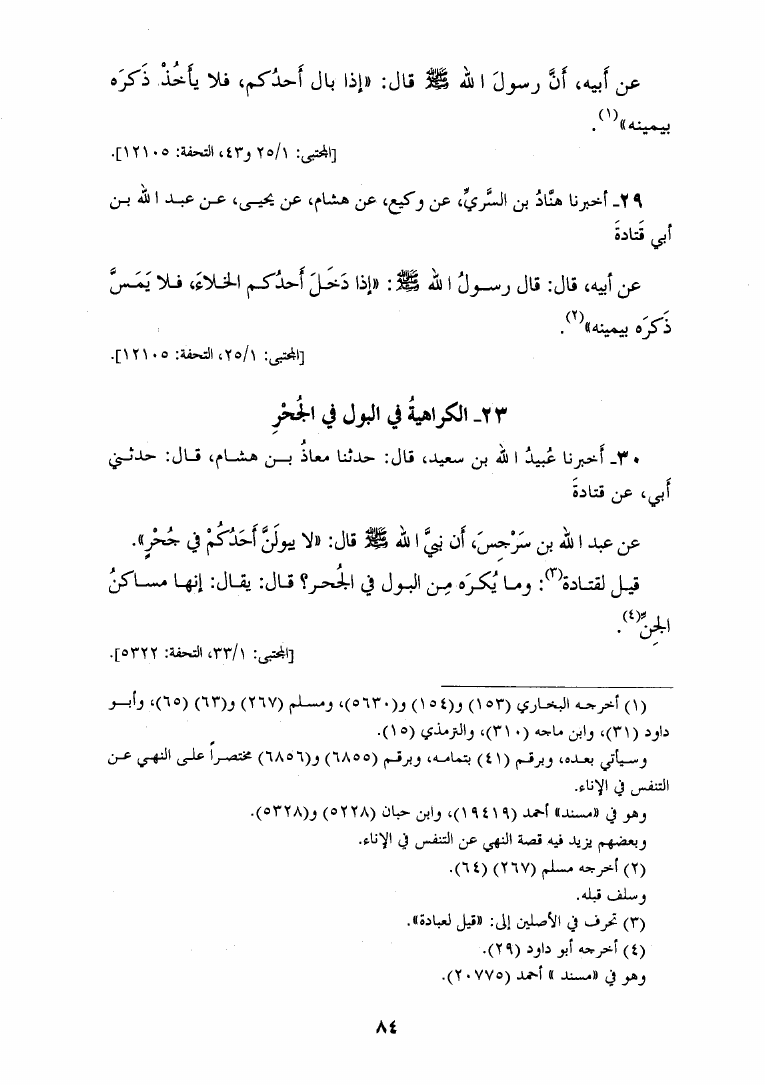 عن أبيه، أنَّ رسولَ ا لله ﷺ قال: «إذا بال أَحدُكم، فلا يأخُذْ ذَكرَه
بيمينه»(١).
[المجتبى: ٢٥/١ و٤٣، التحفة: ١٢١٠٥].
٢٩ـ أخبرنا هنَّادُ بن السَّريِّ، عن وكيع، عن هشام، عن يحيـى، عـن عبـد ا لله بـن
أبي قَتادةَ
عن أبيه، قال: قال رسـولُ ا لله ﷺ: «إذا دَخَـلَ أَحدُكـم الخـلاءَ، فـلا يَمَـسَّ
ذَكرَه بيمينه»(٢).
[المجتبى: ٢٥/١، التحفة: ١٢١٠٥].
٢٣ـ الكراهيةُ في البول في الجُحْرِ
٣٠ـ أَخبرنا عُبيدُ ا لله بن سعيد، قال: حدثنا معاذُ بـن هشـام، قـال: حدثـني
أَبي، عن قتادةَ
عن عبد ا لله بن سَرْجِسَ، أن نبيَّ ا لله ﷺ قال: «لا يبولَنَّ أَحَدُكُمْ في جُحْرٍ».
قيـل لقتـادة(٣): ومـا يُكرَه مِـن البـول في الجُحـر؟ قـال: يقـال: إنهـا مسـاكنُ
الجِنِّ(٤).
[المجتبى: ٣٣/١، التحفة: ٥٣٢٢].
(١) أخرجـه البخـاري (١٥٣) و(١٥٤) و(٥٦٣٠)، ومسـلم (٢٦٧) و(٦٣) (٦٥)، وأبـو
داود (٣١)، وابن ماجه (٣١٠)، والترمذي (١٥).
وسـيأتي بعـده، وبرقـم (٤١) بتمامـه، وبرقـم (٦٨٥٥) و(٦٨٥٦) مختصـراً علـى النهـي عـن
التنفس في الإناء.
وهو في «مسند» أحمد (١٩٤١٩)، وابن حبان (٥٢٢٨) و(٥٣٢٨).
وبعضهم يزيد فيه قصة النهي عن التنفس في الإناء.
(٢) أخرجه مسلم (٢٦٧) (٦٤).
وسلف قبله.
(٣) تحرف في الأصلين إلى: «قيل لعبادة».
(٤) أخرجه أبو داود (٢٩).
وهو في «مسند » أحمد (٢٠٧٧٥).
٨٤